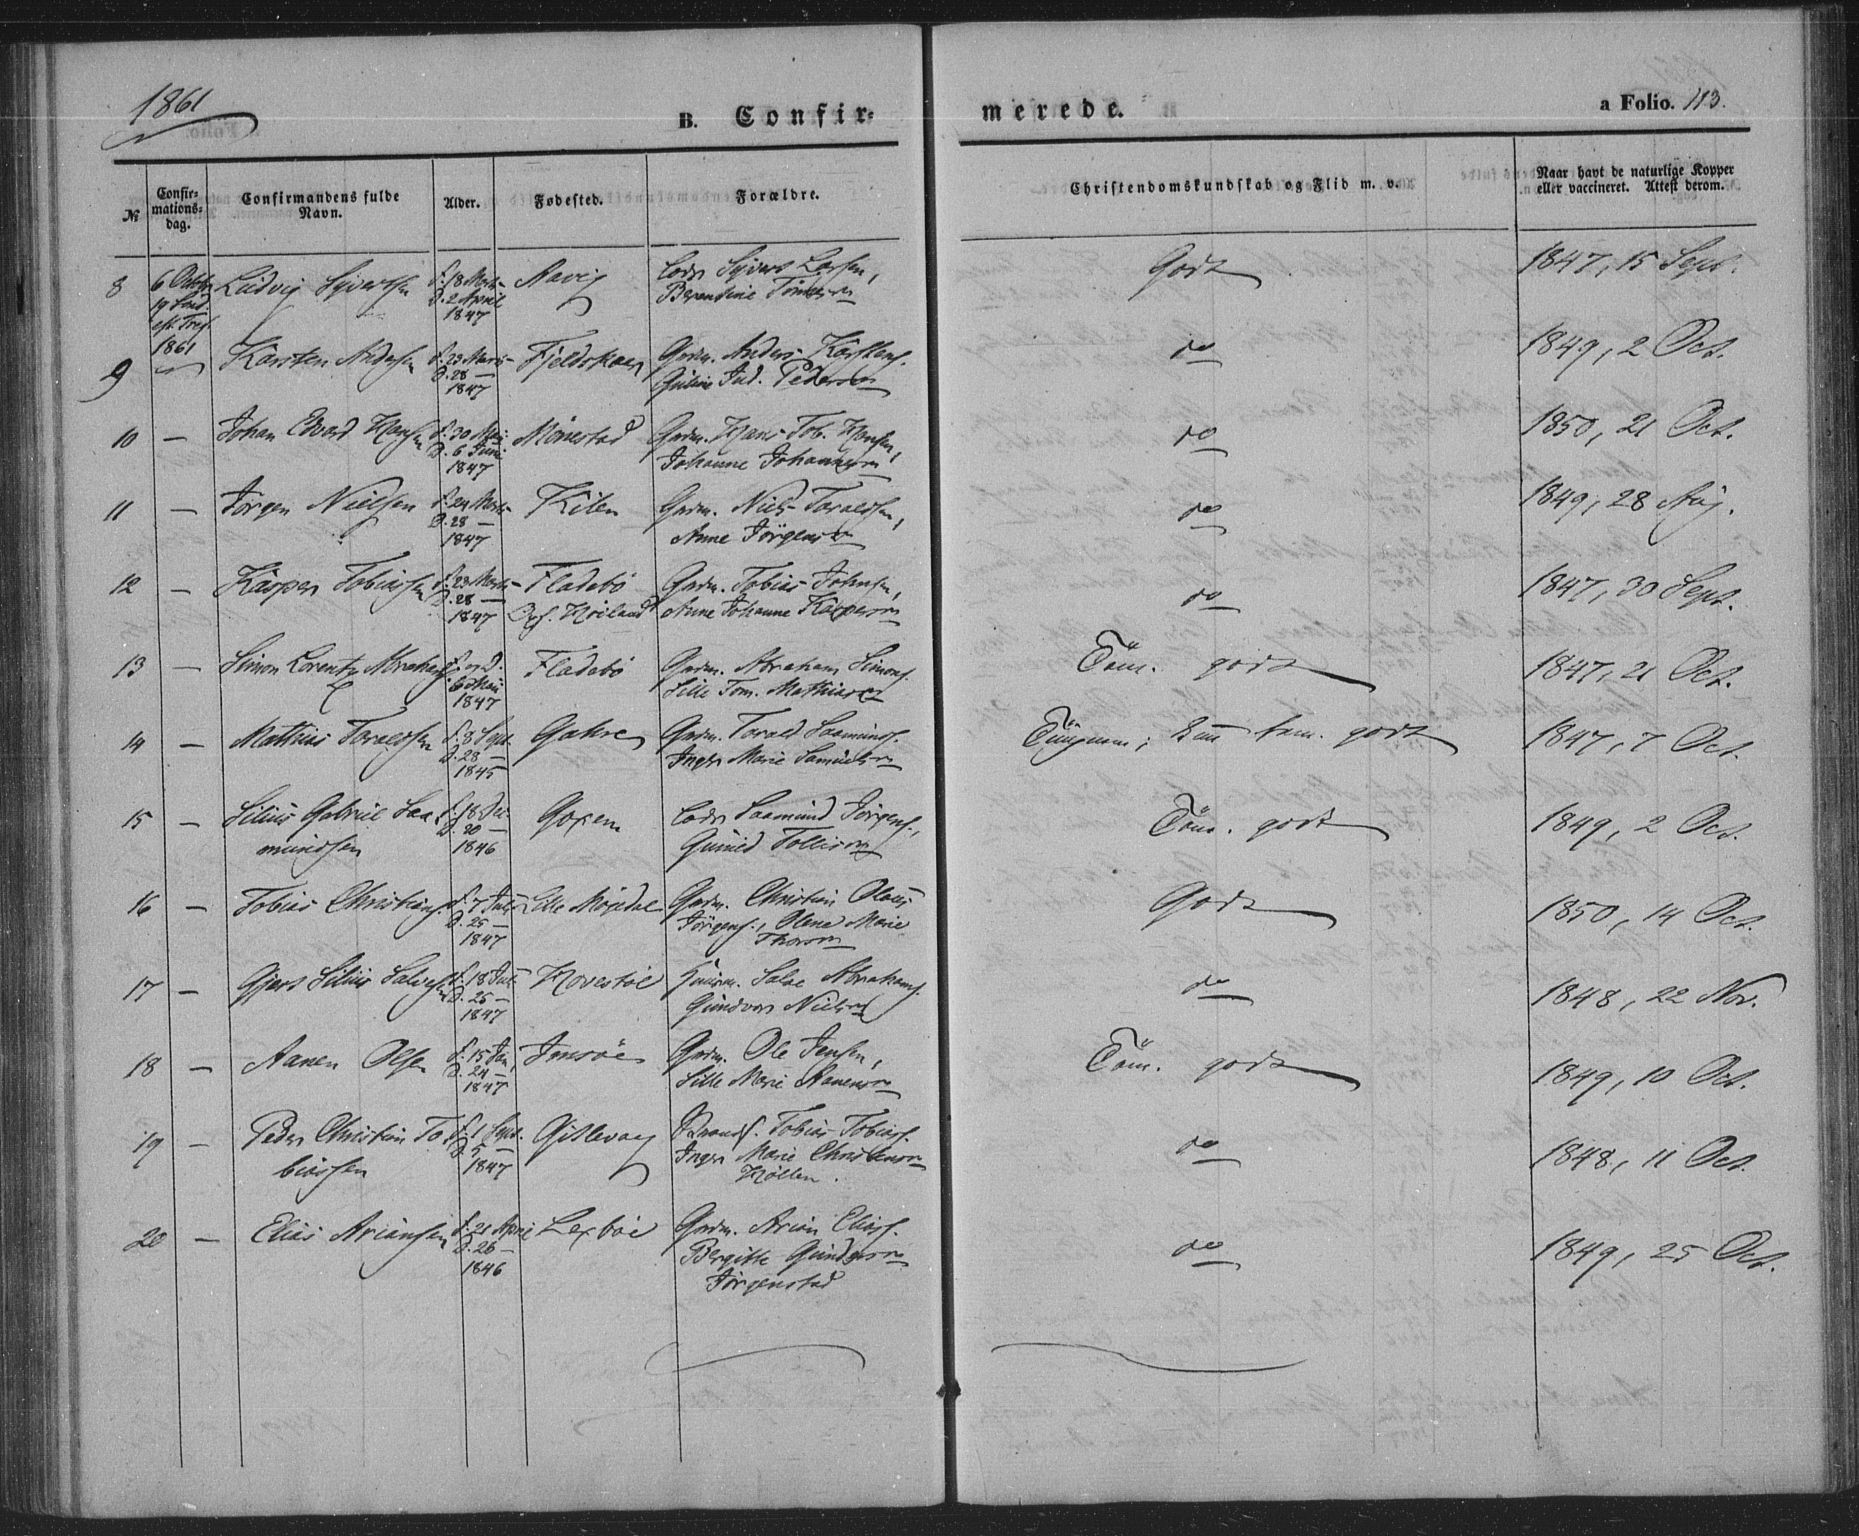 1861
B. Confir- merede. a Folio. 113.
№ Confir-mations-dag. Confirmandens fulde Navn. Alder. Fødested. Forældre. Christendomskundskab og Flid m. v. Naar havt de naturlige Kopper eller vaccineret. Attest derom.
8 6 Octbr 19 Sønd. eft. Tref. 1861 Ludvig Syvertsen f. 18 Marts D. 2 April 1847 Aavig Lods Syvert Larsen, Berentine Godt 1847, 15 Sept.
9 — Karsten Andersen f. 23 Marts D. 28 — 1847 Fjeldskaar Grdm. Anders Karstens. Guline Pedersen do 1849, 2 Oct.
10 — Johan Edvard Hansen f. 30 Mai D. 6 Juni 1847 Mönestad Grdm. Hans Tob. Hansen, Johanne do 1850, 21 Oct.
11 — Jörgen Nielsen f. 24 Marts D. 28 — 1847 Kilen Grdm. Niels Taraldsen, Anne Jörgens do 1849, 28 Aug.
12 — Kasper Tobiassen f. 23 Marts D. 28 — 1847 Fladebö Opf. Höiland Grdm. Tobias Johnsen, Anne Johanne do 1847, 30 Sept.
13 — Simon Lorentz Abrahams. f. og D. 6 Mai 1847 Fladebö Grdm. Abraham Simons. Sille Tom. Mathias Tem. godt 1847, 21 Oct.
14 — Mathias Taraldsen f. 8 Sept. D. 28 — 1845 Gahre Grdm. Tarald Saamunds. Inger Marie Samuels Tungnem; kun tem. godt 1847, 7 Oct.
15 — Silius Gabriel Saa-mundsen f. 18 D. 20 — 1846 Lods Saamund Jörgens., Gunild Tollis Tem. godt 1849, 2 Oct.
16 — Tobias Christians. f. 7 Juli D. 25 — 1847 Lille Grdm. Christian Olaus Jörgens., Olene Marie Godt 1850, 14 Oct.
17 — Gjert Silius Salvesen f. 18 Juli D. 25 — 1847 Hovestöl Salve Abrahams. Gundvor Niels do 1848, 22 Nov.
18 — Aanen Olsen f. 15 Jan. D. 24 — 1847 Imsöe Grdm. Ole Jensen, Sille Marie Aanens Tem. godt 1849, 10 Oct.
19 — Peder Christian To-biassen f. 1 Sept. D. 5 — 1847 Gislevaag Tobias Tobias. Inger Marie Höllen. do 1848, 11 Oct.
20 — Elias Ariansen f. 21 April D. 26 — 1846 Lexböe Grdm. Arian Elias. Bergitte Jörgenstad do 1849, 25 Oct.